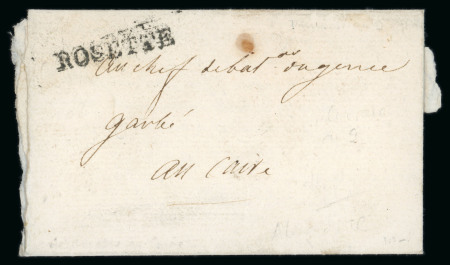 ROSETTE
Au chef de bat.on du genie
garbé
au Caire